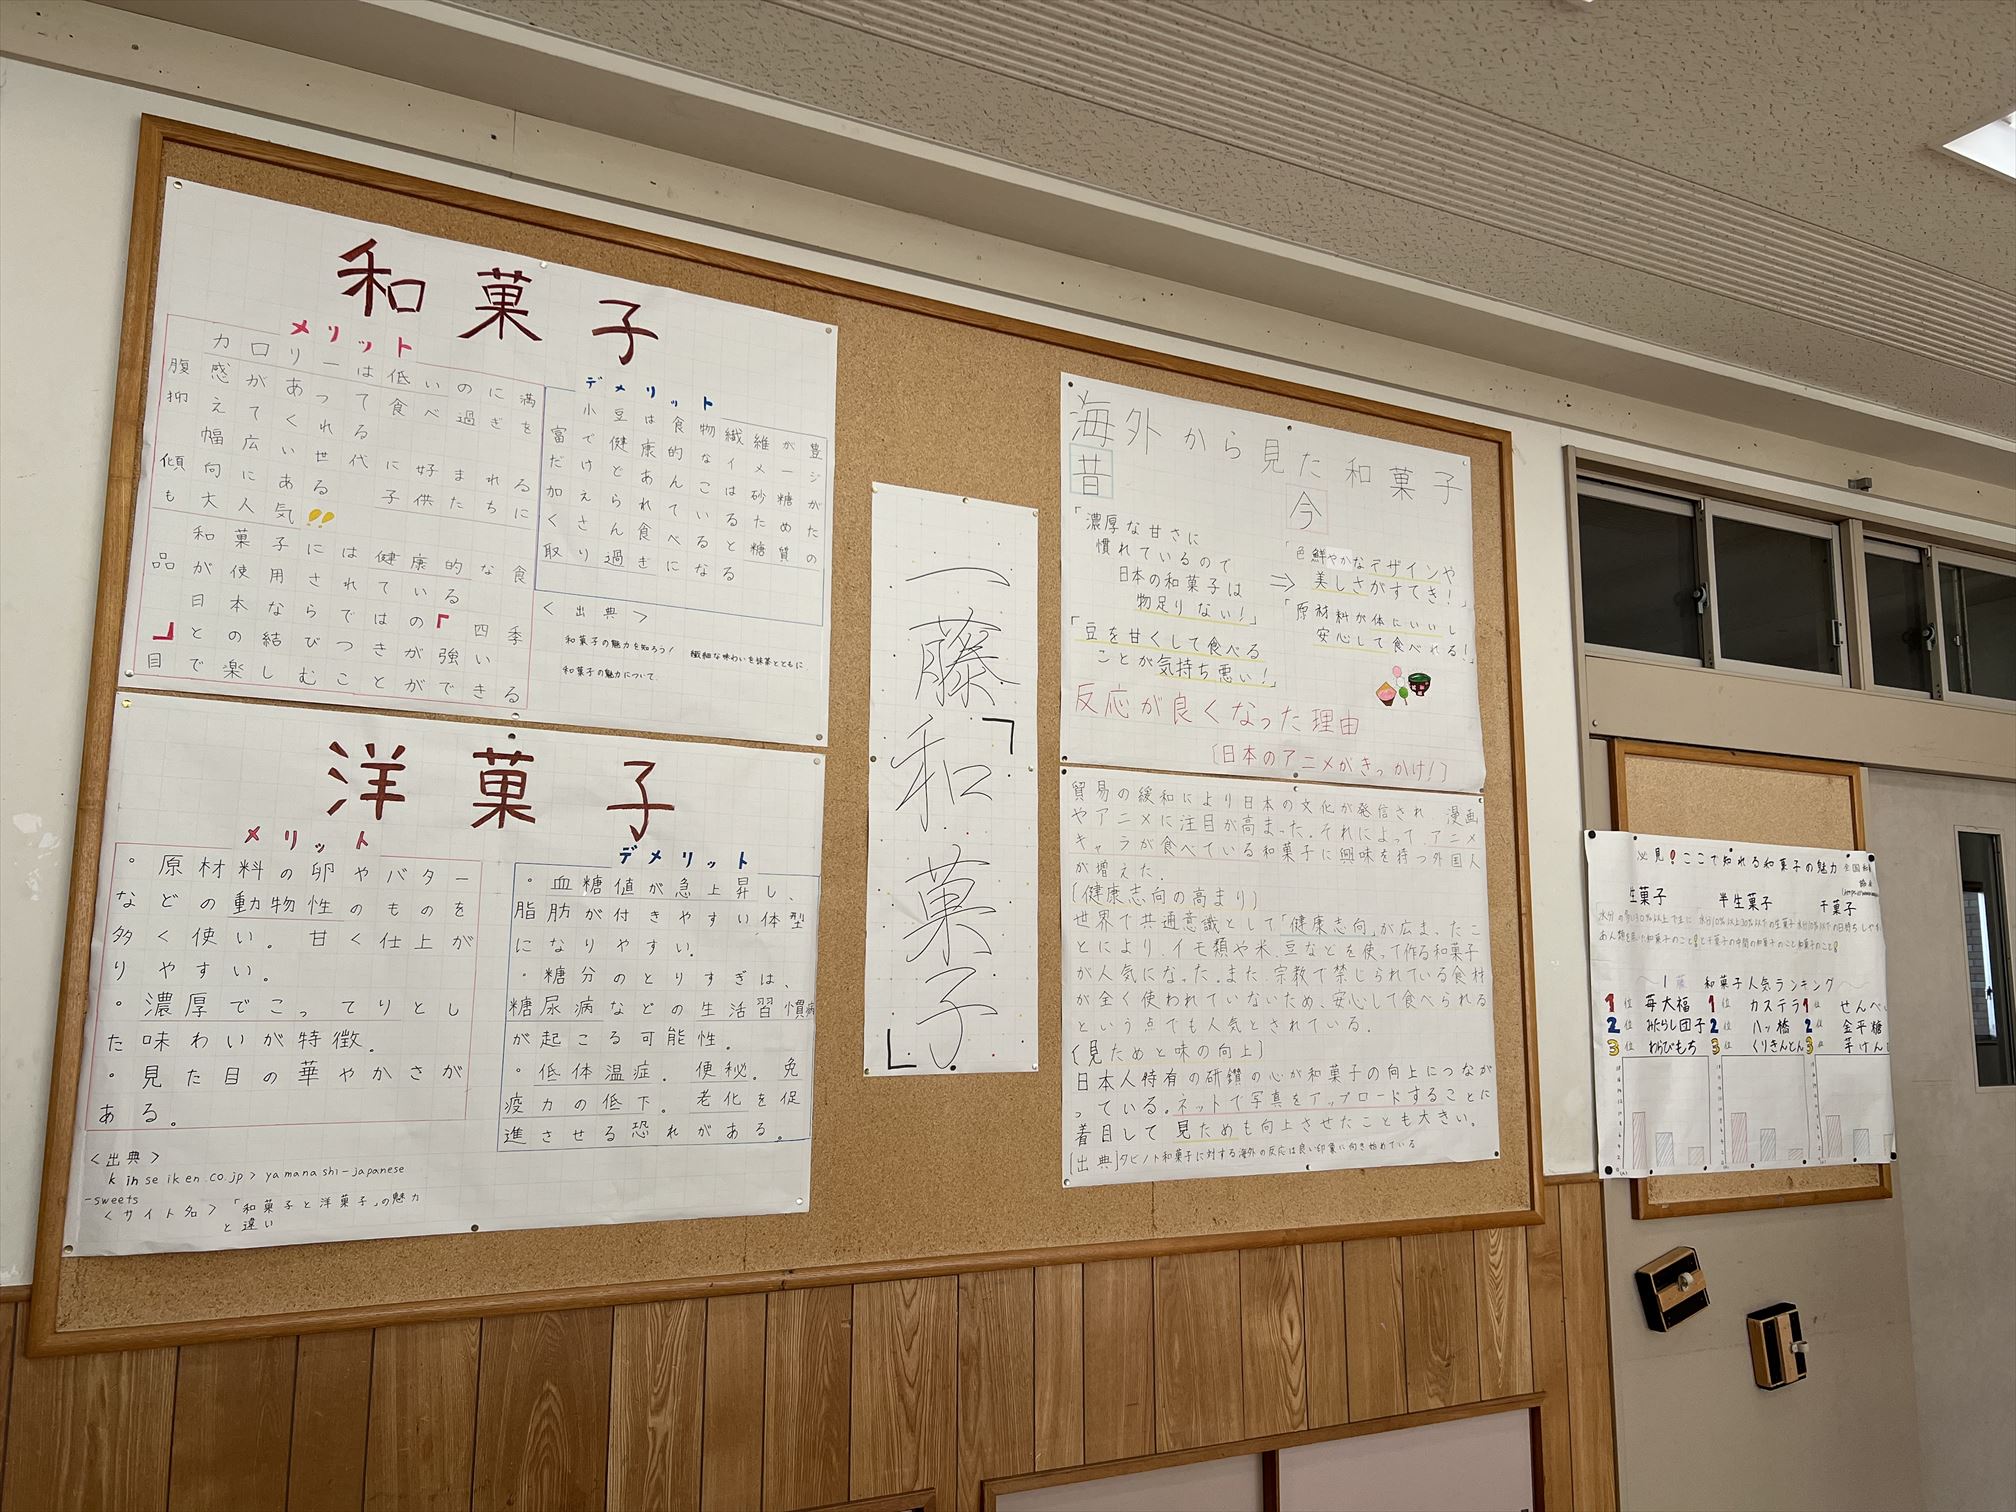 和菓子
メリット
カロリーは低いのに満
腹感があって食べ過ぎを
抑えてくれる
幅広い世代に好まれる
傾向にある 子供たちに
も大人気!!
和菓子には健康的な食
品が使用されている
日本ならではの「四季
」との結びつきが強い
目で楽しむことができる
デメリット
小豆は食物繊維が豊
富で健康的なイメージ
だけどあんこには砂糖が
加えられているため
取り過ぎになる
<出典>
和菓子の魅力を知ろう! 繊細な味わいを抹茶とともに
和菓子の魅力について
洋菓子
メリット
・原材料の卵やバター
などの動物性のものを
多く使い。甘く仕上が
りやすい。
・濃厚でこってりとし
た味わいが特徴。
・見た目の華やかさが
ある。
デメリット
・血糖値が急上昇し、
脂肪が付きやすい体型
になりやすい。
・糖分のとりすぎは、
糖尿病などの生活習慣病
が起こる可能性。
・低体温症。便秘。免
疫力の低下。老化を促
進させる恐れがある。
<出典>
kinseiken.co.jp>yamanashi-japanese
-sweets
<サイト名>「和菓子と洋菓子」の魅力
と違い
一藤「和菓子」
海外から見た和菓子
昔
「濃厚な甘さに
慣れているので
日本の和菓子は
物足りない!」
「豆を甘くして食べる
ことが気持ち悪い!」
⇒
今
「色鮮やかなデザインや
美しさがすてき!」
「原材料が体にいいし
安心して食べれる!」
反応が良くなった理由
〔日本のアニメがきっかけ!〕
貿易の緩和により日本の文化が発信され 漫画
やアニメに注目が高まった.それによって アニメ
キャラが食べている和菓子に興味を持つ外国人
が増えた.
〔健康志向の高まり〕
世界で共通意識として「健康志向」が広まったこ
とにより.イモ類や米.豆などを使って作る和菓子
が人気になった.また.宗教で禁じられている食材
が全く使われていないため、安心して食べられる
という点でも人気とされている.
〔見ためと味の向上〕
日本人特有の研鑽の心が和菓子の向上につなが
っている。ネットで写真をアップロードすることに
着目して 見ためも向上させたことも大きい。
[出典]タビノト和菓子に対する海外の反応は良い印象に向き始めている
必見!ここで知れる和菓子の魅力
生菓子
半生菓子
干菓子
1藤 和菓子人気ランキング
1位 苺大福
2位 みたらし団子
3位 わらびもち
1位 カステラ
2位 八ッ橋
3位 くりきんとん
1位 せんべい
2位 金平糖
3位 芋けんぴ